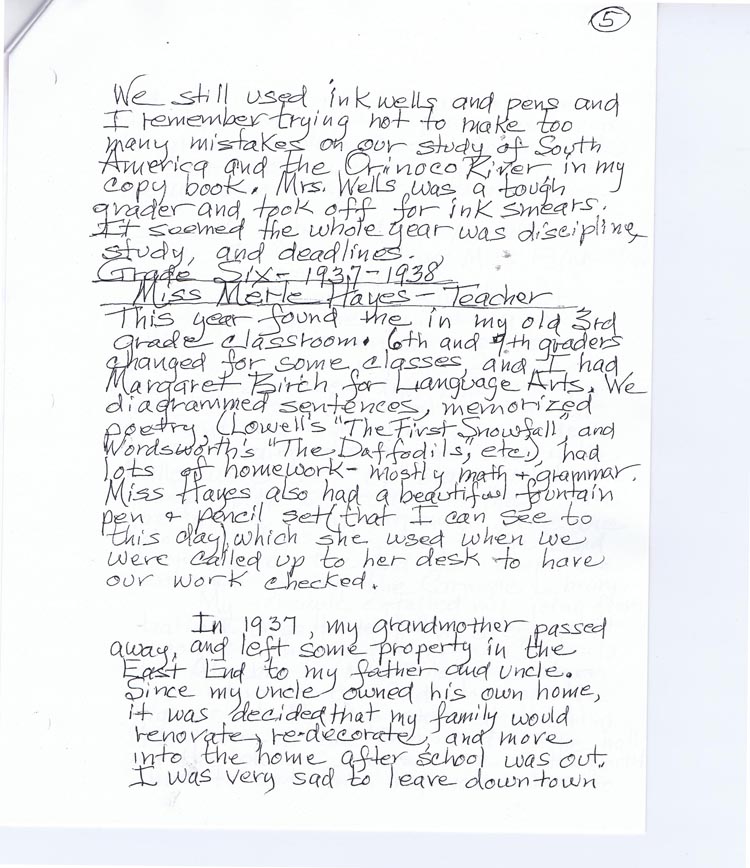 5
We still used inkwells and pens and
I remember trying not to make too
many mistakes on our study of South
America and the Orinoco River, in my
copy book. Mrs. Wells was a tough
grader and took off for ink smears.
It seemed the whole year was discipline,
study, and deadlines.
Grade Six - 1937-1938
Miss Merle Hayes - Teacher
This year found the in my old 3rd
grade classroom. 6th and 7th graders
changed for some classes, and I had
Margaret Birch for Language Arts. We
diagrammed sentences, memorized
poetry, (Lowell's "The First Snowfall", and
Wordsworth's "The Daffodils," etc.), had
lots of homework - mostly math + grammar.
Miss Hayes also had a beautiful fountain
pen + pencil set (that I can see to
this day) which she used when we
were called up to her desk to have
our work checked.
In 1937, my grandmother passed
away, and left some property in the
East End to my father and uncle.
Since my uncle owned his own home,
it was decided that my family would
renovate, re-decorate, and more
into the home after school was out.
I was very sad to leave downtown